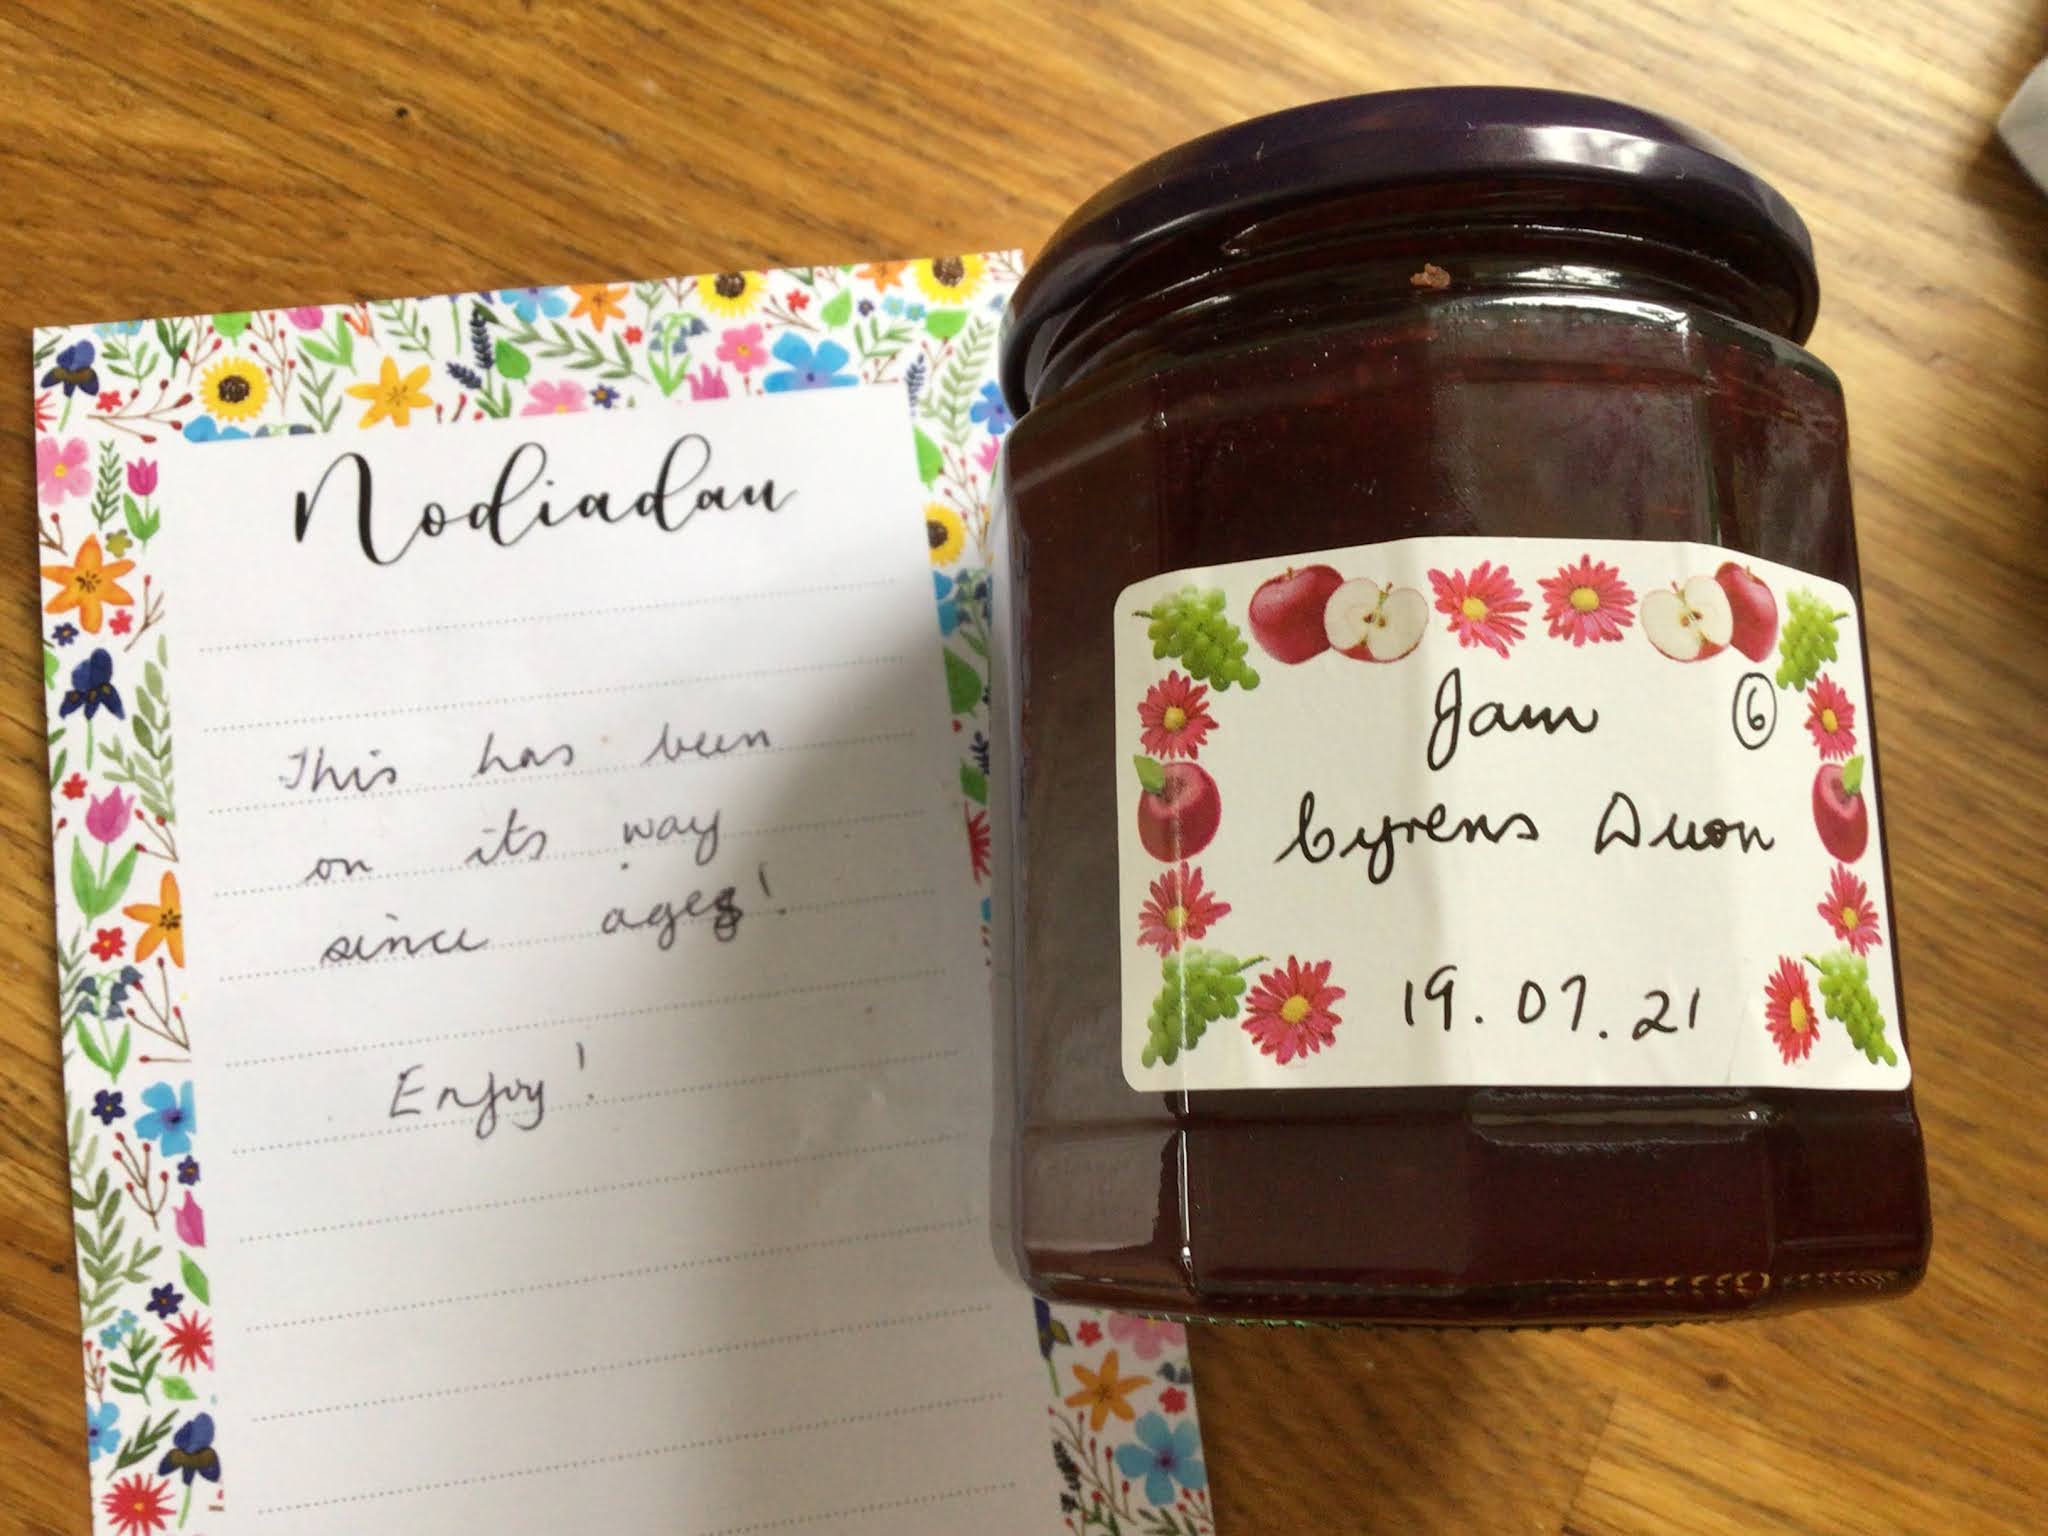 Nodiadau
This has been
on its way
since ages!
Enjoy!
Jam 6
Cyrens Duon
19.07.21